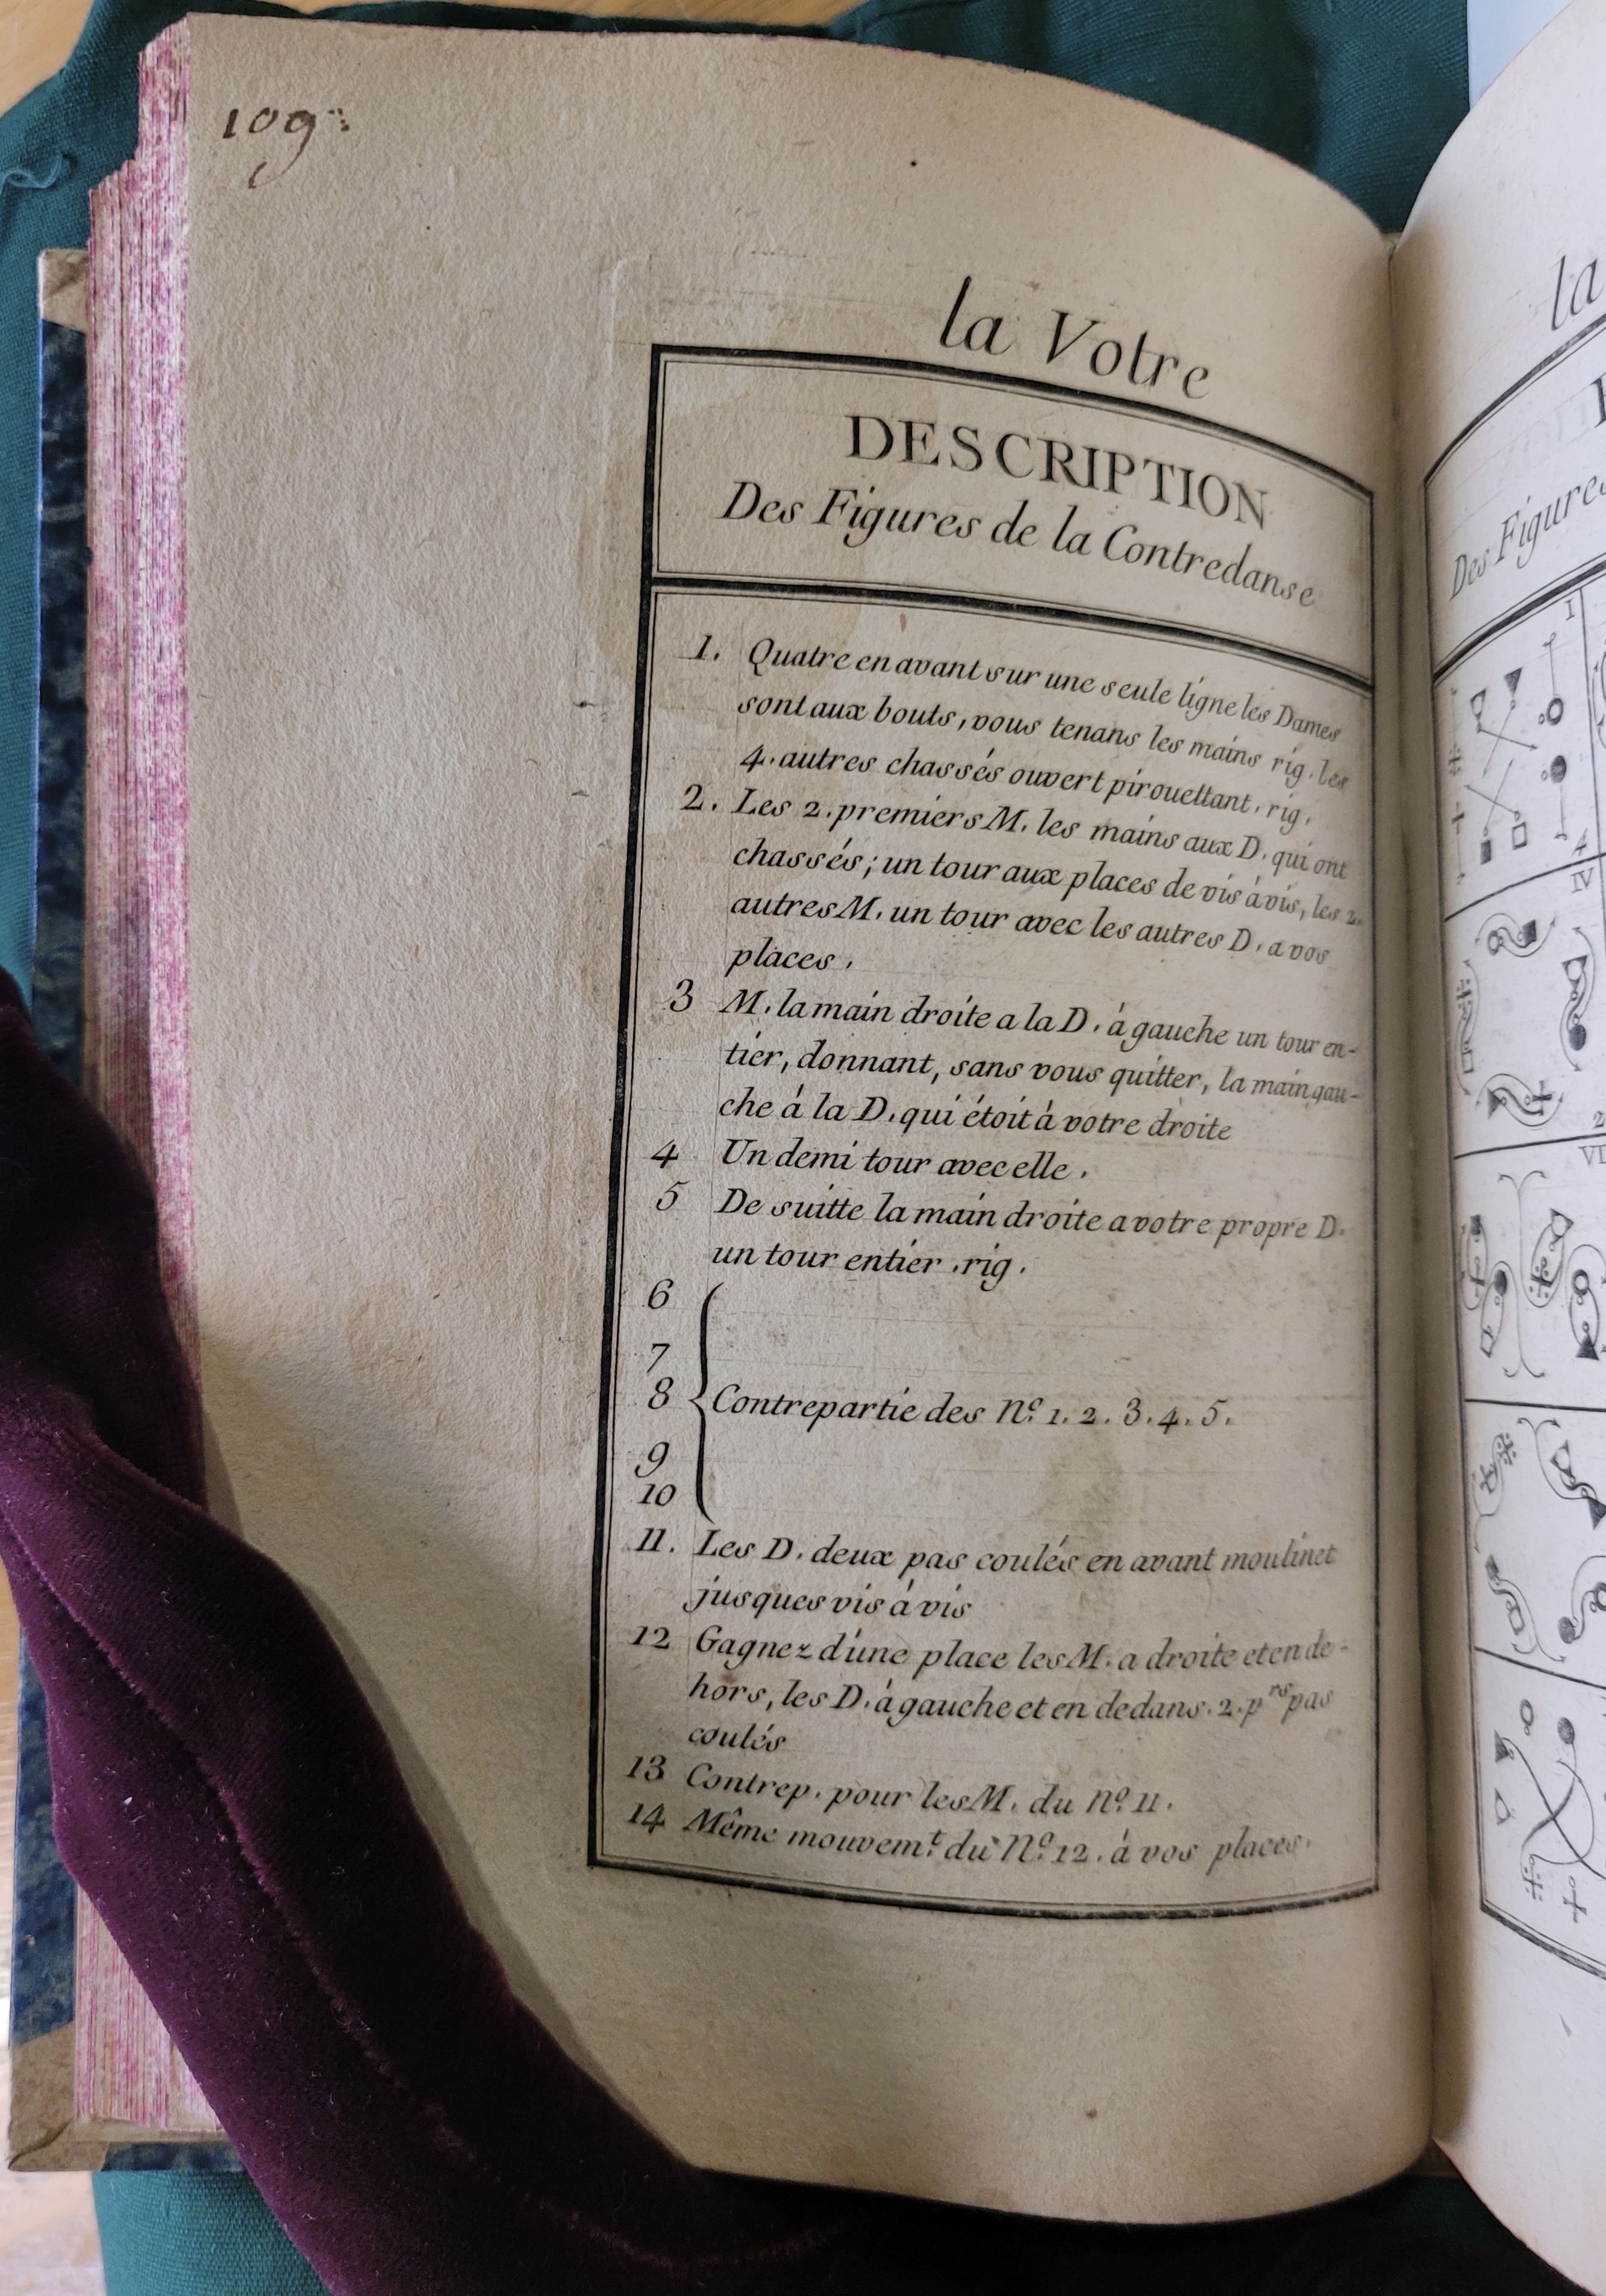 109
la Votre
DESCRIPTION
Des Figures de la Contredanse
1. Quatre en avant sur une seule ligne les Dames
sont aux bouts, vous tenans les mains rig. les
4. autres chassés ouvert pirouettant. rig.
2. Les 2. premiers M. les mains aux D. qui ont
chassés; un tour aux places de vis à vis, les 2.
autres M. un tour avec les autres D. a vos
places.
3 M. la main droite a la D. à gauche un tour en-
tier, donnant, sans vous quitter, la main gau-
che à la D. qui étoit à votre droite
4 Un demi tour avec elle.
5 De suitte la main droite a votre propre D.
un tour entier. rig.
6
7
8 Contrepartie des No. 1. 2. 3. 4. 5.
9
10
11. Les D. deux pas coulés en avant moulinet
jusques vis à vis
12 Gagnez d'une place les M. a droite et en de-
hors, les D. à gauche et en dedans. 2. prs pas
coulés
13 Contrep. pour les M. du No. 11.
14 Même mouvemt. du No. 12. à vos places.
la
Des Figures
I
4
IV
2
VI